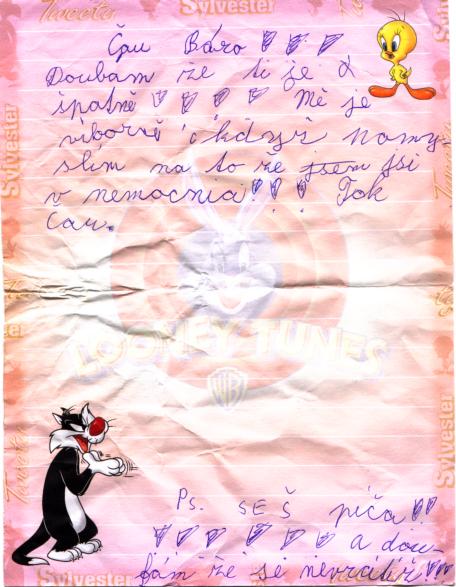 Tweety
Sylvester
Čau Báro
Doubam že ti je
špatně Mě je
víborně i když namy-
slím na to že jsem jsi
v nemocnia!!! Tok
čau.
LOONEY TUNES
WB
Sylvester
Sylvester
Tweety
Sylvester
Ps. SEŠ píča!!
a dou-
fám že se nevrátíš!!
Sylvester